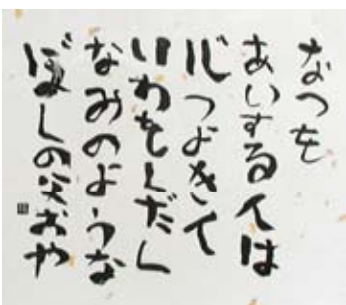 なつを
あいする人は
心つよき人
いわをくだく
なみのような
ぼくの父おや